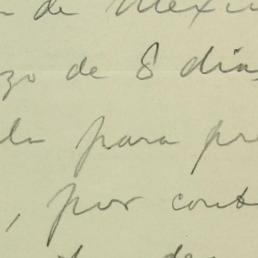 de Mexic
zo de 8 dia
la para pr
, por cont